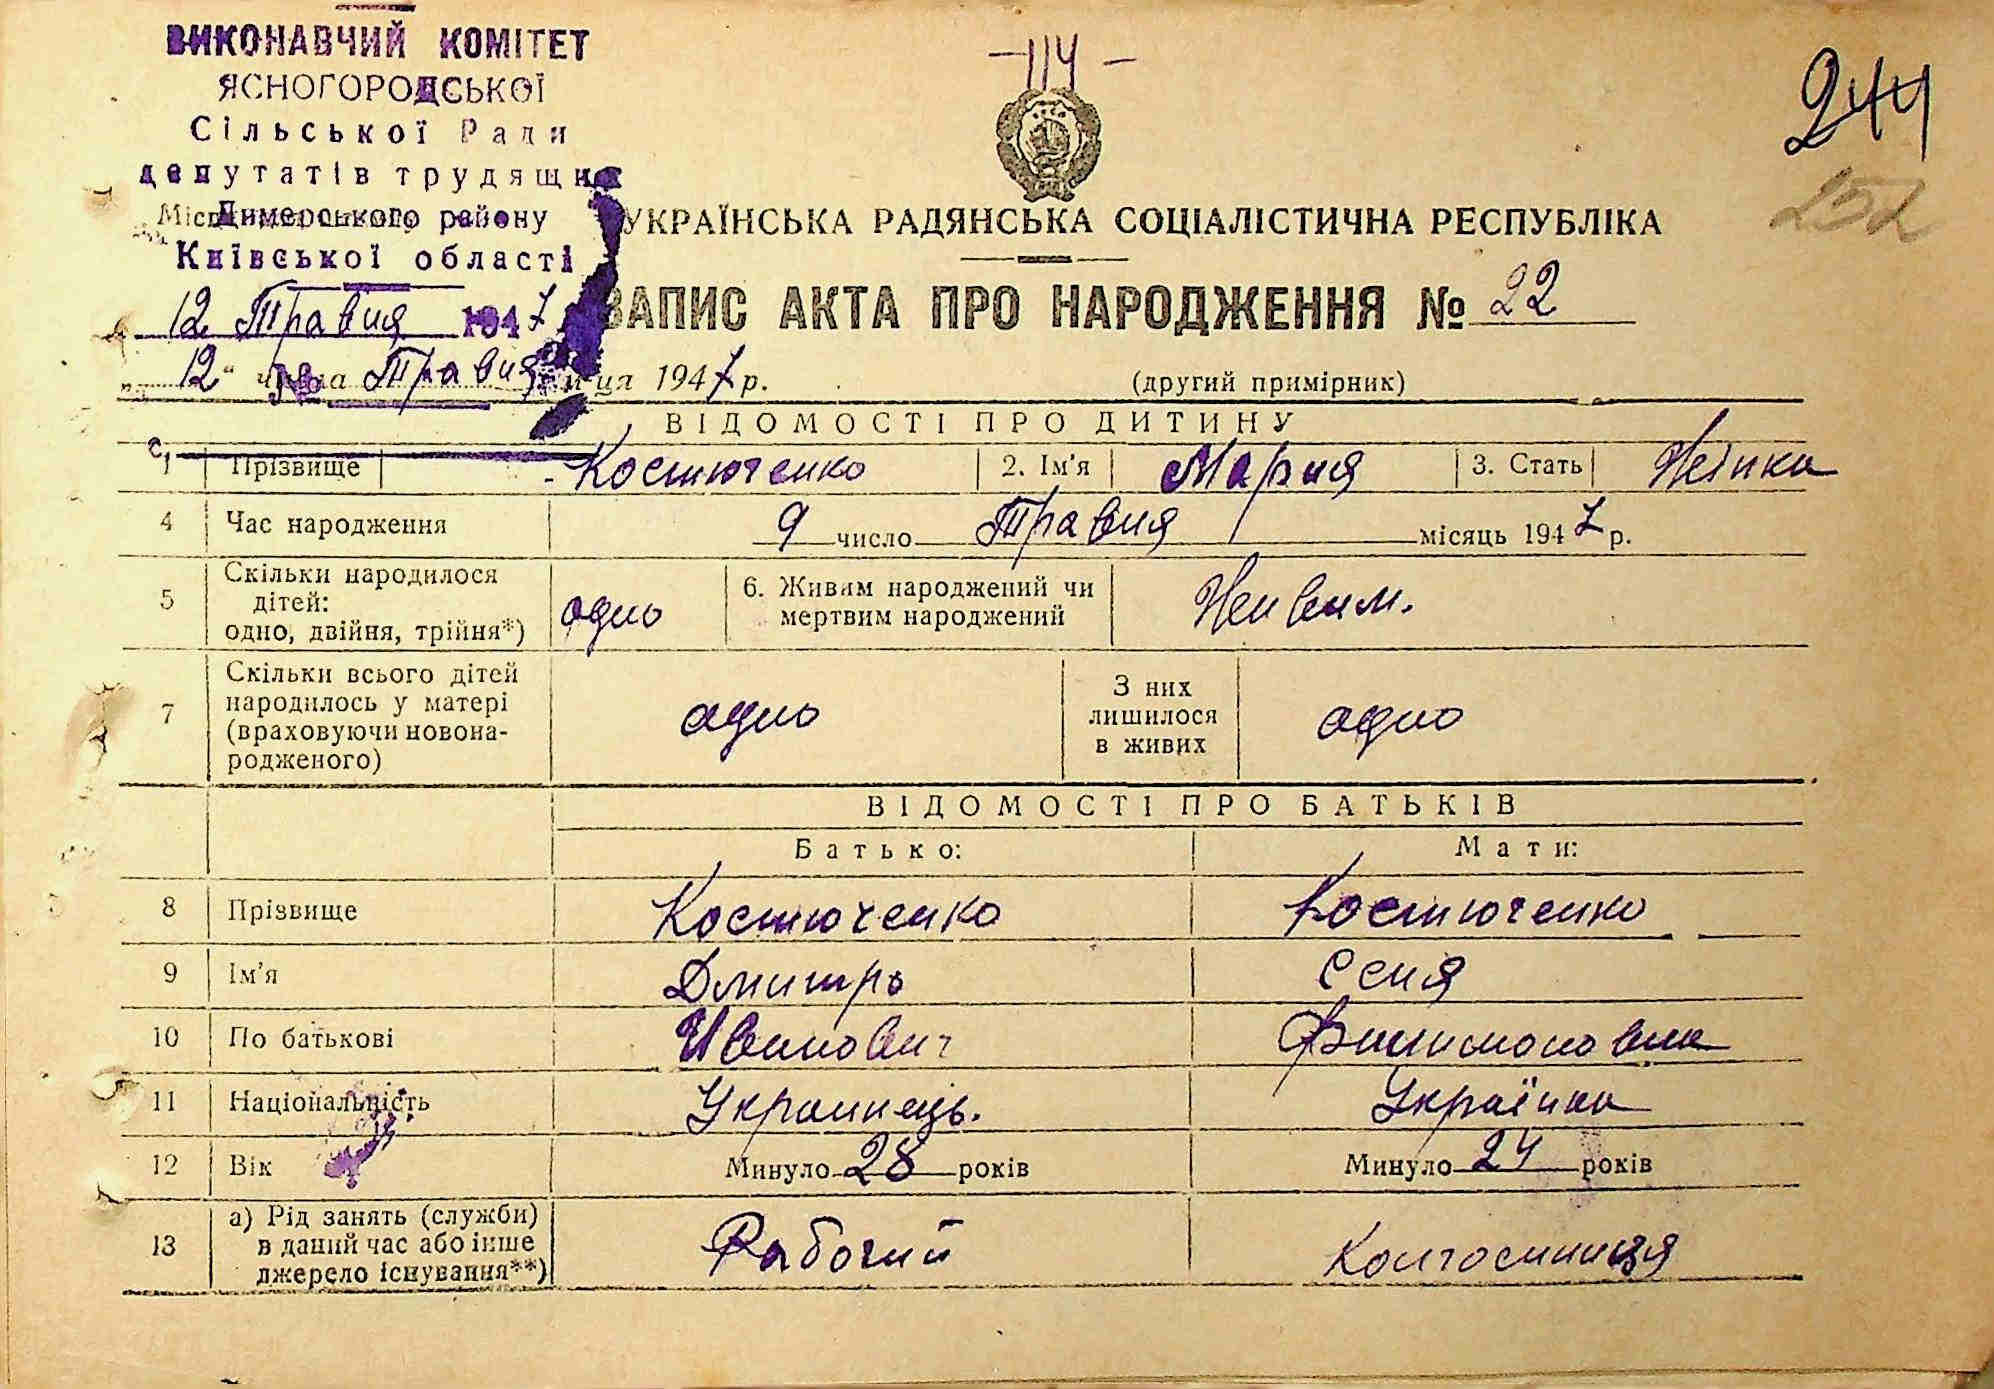 ВИКОНАВЧИЙ КОМІТЕТ
ЯСНОГОРОДСЬКОЇ
Сільської Ради
депутатів трудящих
Димерського району
Київської області
12 Травня 1947
№
-114-
244
252
УКРАЇНСЬКА РАДЯНСЬКА СОЦІАЛІСТИЧНА РЕСПУБЛІКА
ЗАПИС АКТА ПРО НАРОДЖЕННЯ № 22
"12" числа Травня місяця 1947 р.
(другий примірник)
ВІДОМОСТІ ПРО ДИТИНУ
1 Прізвище Костюченко 2. Ім'я Мария 3. Стать Жінка
4 Час народження 9 число Травня місяць 1947 р.
5 Скільки народилося дітей: одно, двійня, трійня*) одно 6. Живим народжений чи мертвим народжений Живим.
7 Скільки всього дітей народилось у матері (враховуючи новонародженого) одно З них лишилося в живих одно
ВІДОМОСТІ ПРО БАТЬКІВ
Батько: Мати:
8 Прізвище Костюченко Костюченко
9 Ім'я Дмитро Сеня
10 По батькові Иванович Филимоновна
11 Національність Украинець. Українка
12 Вік Минуло 28 років Минуло 24 років
13 а) Рід занять (служби) в даний час або інше джерело існування**) Рабочий Колгоспниця